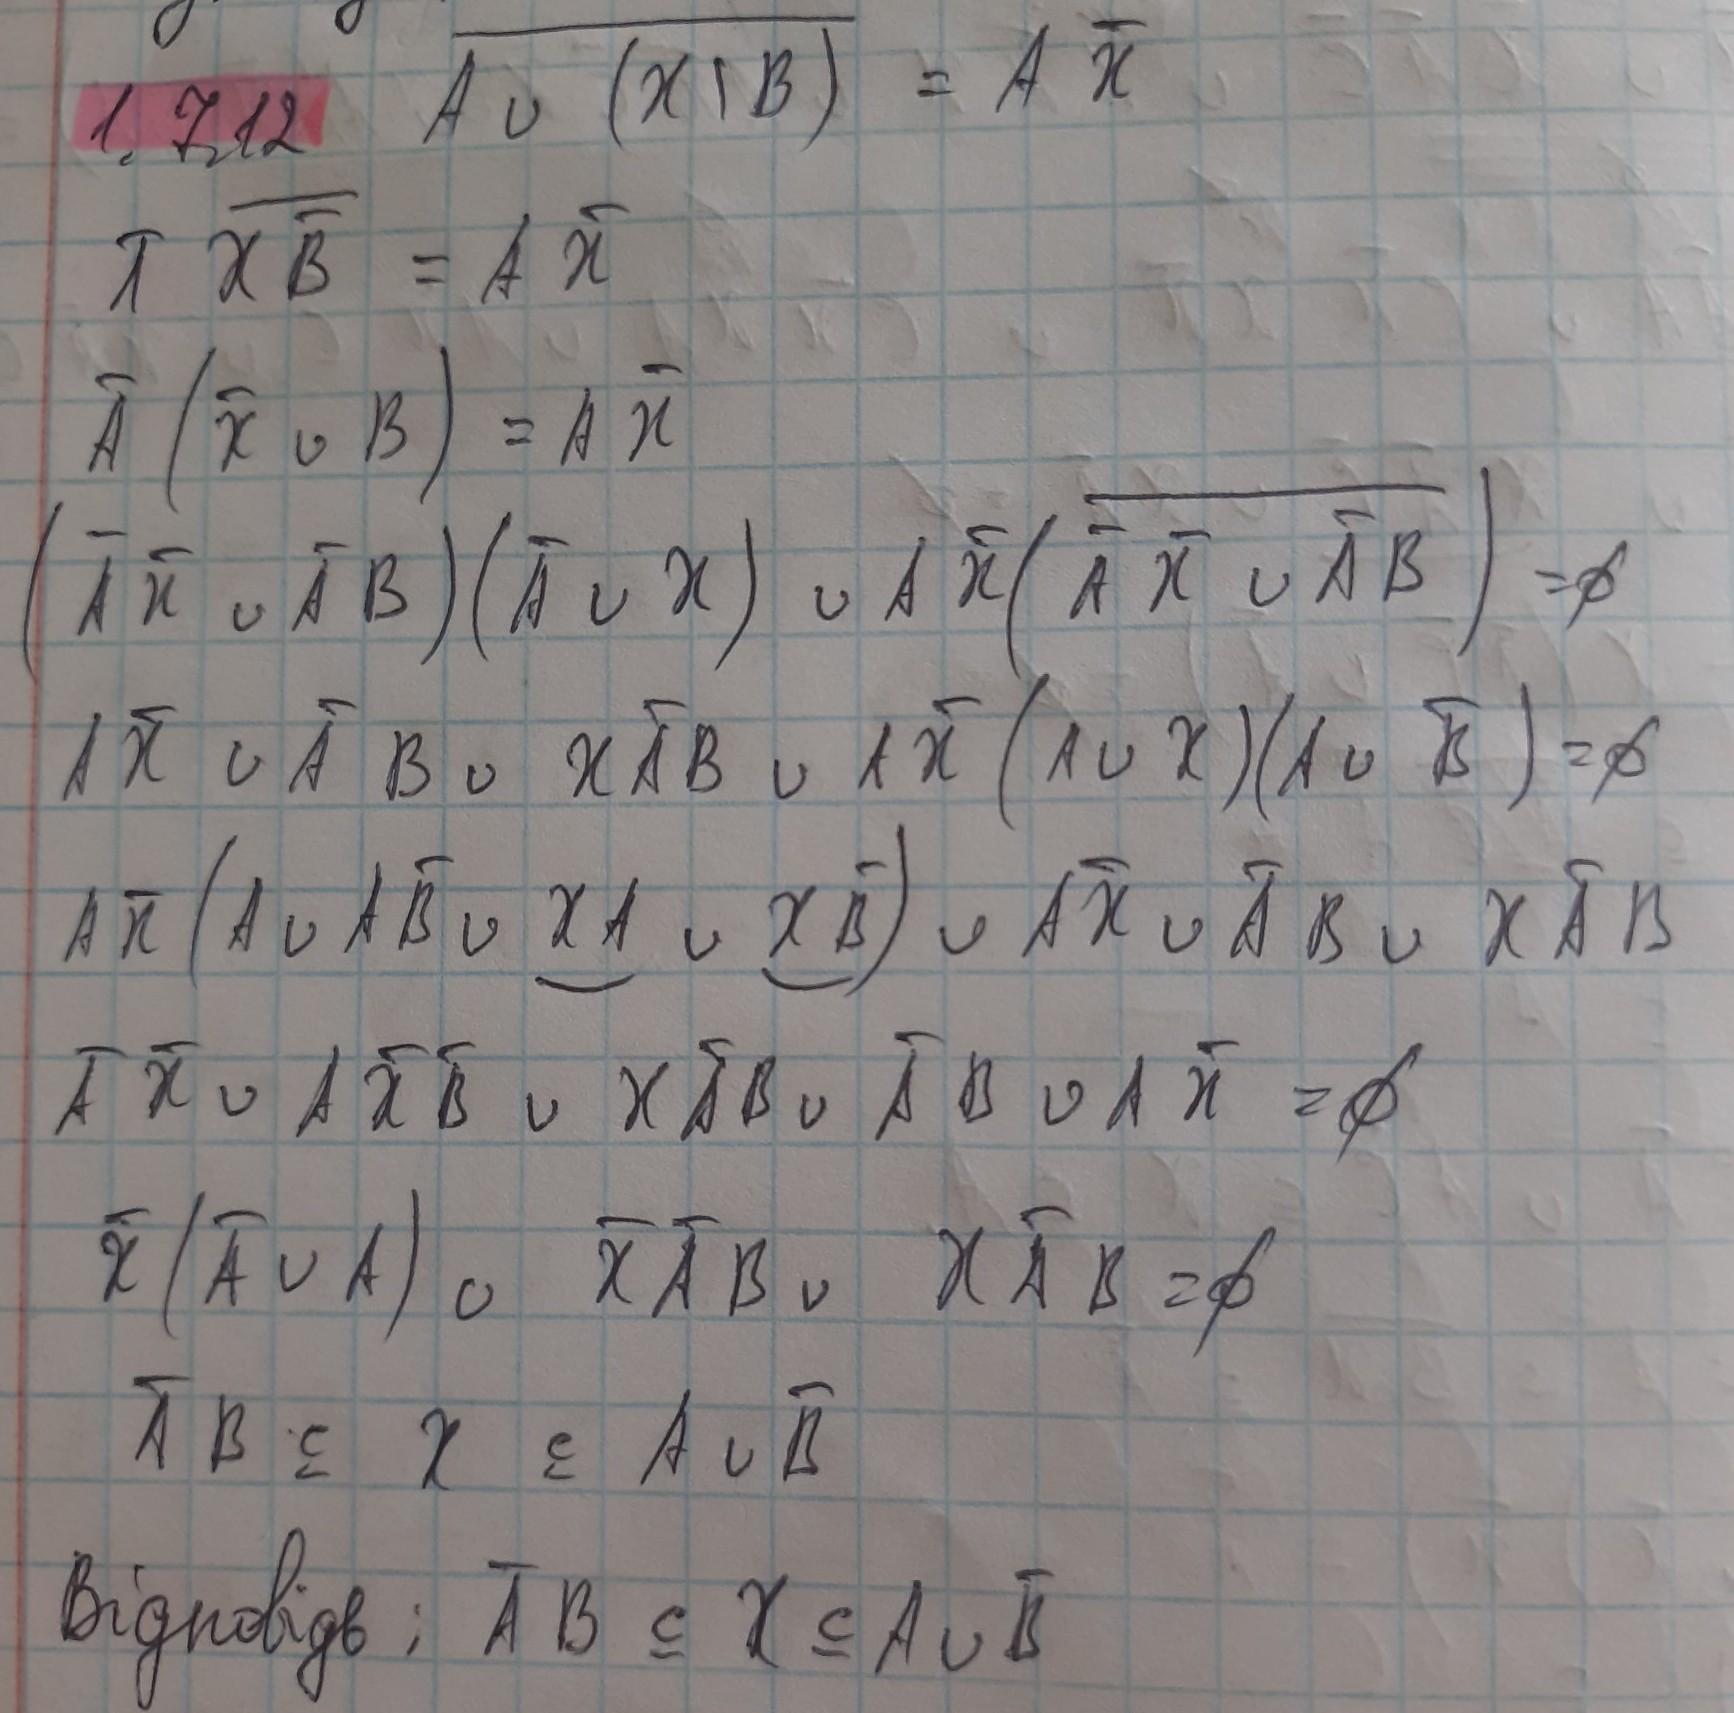 1.7.12 \overline{A ∪ (X \ B)} = A X̄
Ā \overline{X B̄} = A X̄
Ā (X̄ ∪ B) = A X̄
(Ā X̄ ∪ Ā B)(Ā ∪ X) ∪ A X̄ (\overline{Ā X̄ ∪ Ā B}) = ∅
A X̄ ∪ Ā B ∪ X Ā B ∪ A X̄ (A ∪ X)(A ∪ B̄) = ∅
A X̄ (A ∪ A B̄ ∪ X A ∪ X B̄) ∪ A X̄ ∪ Ā B ∪ X Ā B
Ā X̄ ∪ A X̄ B̄ ∪ X Ā B ∪ Ā B ∪ A X̄ = ∅
X̄ (Ā ∪ A) ∪ X̄ Ā B ∪ X Ā B = ∅
Ā B ⊆ X ⊆ A ∪ B̄
Відповідь: Ā B ⊆ X ⊆ A ∪ B̄